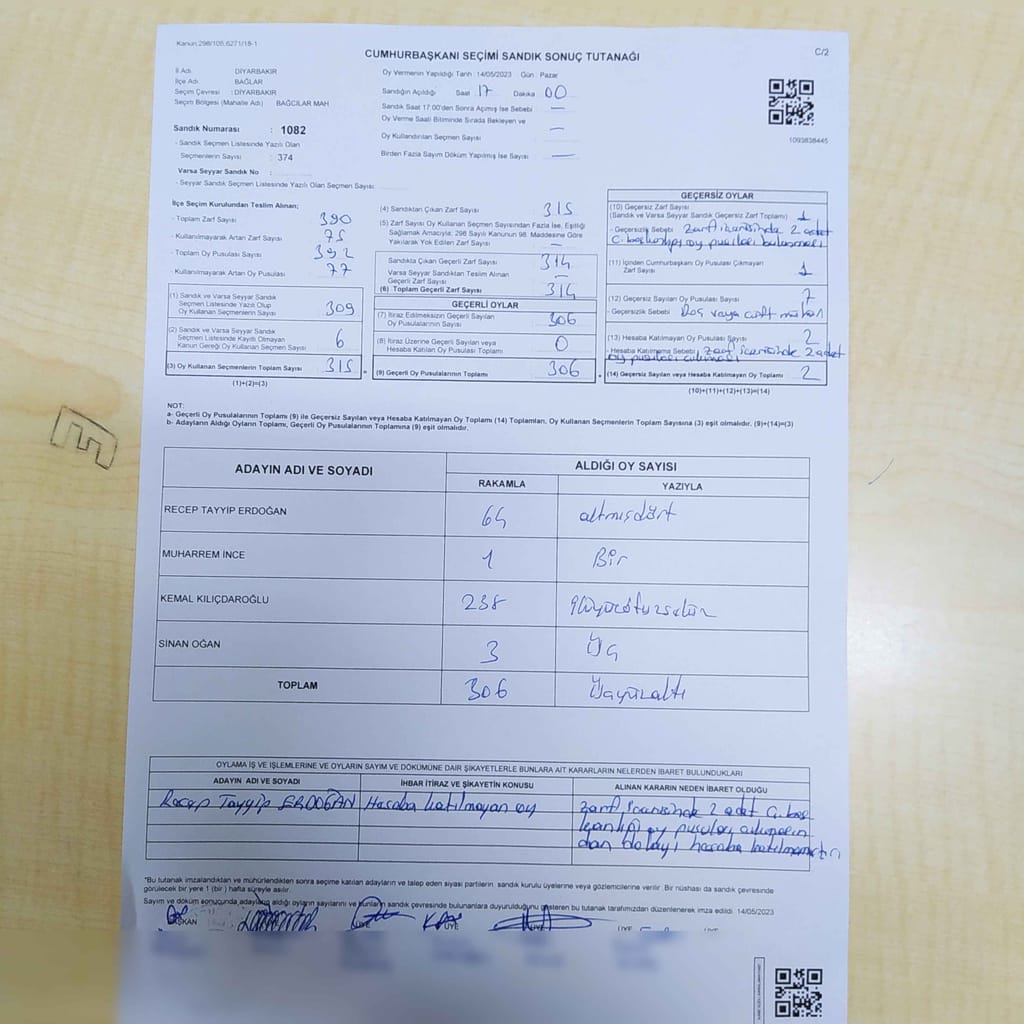 Kanun:298/105,6271/18-1
C/2
CUMHURBAŞKANI SEÇİMİ SANDIK SONUÇ TUTANAĞI
İl Adı DİYARBAKIR
İlçe Adı BAĞLAR
Seçim Çevresi : DİYARBAKIR
Seçim Bölgesi (Mahalle Adı) BAĞCILAR MAH
Sandık Numarası : 1082
- Sandık Seçmen Listesinde Yazılı Olan
Seçmenlerin Sayısı : 374
Varsa Seyyar Sandık No :
- Seyyar Sandık Seçmen Listesinde Yazılı Olan Seçmen Sayısı:
Oy Vermenin Yapıldığı Tarih 14/05/2023 Gün : Pazar
Sandığın Açıldığı Saat 17 Dakika 00
Sandık Saat 17:00'den Sonra Açılmış İse Sebebi —
Oy Verme Saati Bitiminde Sırada Bekleyen ve
Oy Kullandırılan Seçmen Sayısı —
Birden Fazla Sayım Döküm Yapılmış İse Sayısı —
1093838445
İlçe Seçim Kurulundan Teslim Alınan;
- Toplam Zarf Sayısı 390
- Kullanılmayarak Artan Zarf Sayısı 75
- Toplam Oy Pusulası Sayısı 392
- Kullanılmayarak Artan Oy Pusulası 77
(1) Sandık ve Varsa Seyyar Sandık
Seçmen Listesinde Yazılı Olup
Oy Kullanan Seçmenlerin Sayısı 309
(2) Sandık ve Varsa Seyyar Sandık
Seçmen Listesinde Kayıtlı Olmayan
Kanun Gereği Oy Kullanan Seçmen Sayısı 6
(3) Oy Kullanan Seçmenlerin Toplam Sayısı 315
(1)+(2)=(3)
(4) Sandıktan Çıkan Zarf Sayısı 315
(5) Zarf Sayısı Oy Kullanan Seçmen Sayısından Fazla İse, Eşitliği
Sağlamak Amacıyla; 298 Sayılı Kanunun 98. Maddesine Göre
Yakılarak Yok Edilen Zarf Sayısı —
Sandıkta Çıkan Geçerli Zarf Sayısı 314
Varsa Seyyar Sandıktan Teslim Alınan
Geçerli Zarf Sayısı —
(6) Toplam Geçerli Zarf Sayısı 314
GEÇERLİ OYLAR
(7) İtiraz Edilmeksizin Geçerli Sayılan
Oy Pusulasının Sayısı 306
(8) İtiraz Üzerine Geçerli Sayılan veya
Hesaba Katılan Oy Pusulası Toplamı 0
(9) Geçerli Oy Pusulalarının Toplamı 306
GEÇERSİZ OYLAR
(10) Geçersiz Zarf Sayısı
(Sandık ve Varsa Seyyar Sandık Geçersiz Zarf Toplamı) 1
- Geçersizlik Sebebi zarf içerisinde 2 adet
C.başkanlığı oy pusulası bulunması
(11) İçinden Cumhurbaşkanı Oy Pusulası Çıkmayan
Zarf Sayısı 1
(12) Geçersiz Sayılan Oy Pusulası Sayısı 7
- Geçersizlik Sebebi Boş veya çift mühür
(13) Hesaba Katılmayan Oy Pusulası 2
- Hesaba Katılmama Sebebi zarf içerisinde 2 adet
oy pusulası çıkması
(14) Geçersiz Sayılan veya Hesaba Katılmayan Oy Toplamı 2
(10)+(11)+(12)+(13)=(14)
NOT:
a- Geçerli Oy Pusulalarının Toplamı (9) ile Geçersiz Sayılan veya Hesaba Katılmayan Oy Toplamı (14) Toplamları, Oy Kullanan Seçmenlerin Toplam Sayısına (3) eşit olmalıdır. (9)+(14)=(3)
b- Adayların Aldığı Oyların Toplamı, Geçerli Oy Pusulalarının Toplamına (9) eşit olmalıdır.
ADAYIN ADI VE SOYADI ALDIĞI OY SAYISI
RAKAMLA YAZIYLA
RECEP TAYYİP ERDOĞAN 64 altmışdört
MUHARREM İNCE 1 Bir
KEMAL KILIÇDAROĞLU 238
SİNAN OĞAN 3 Üç
TOPLAM 306 Üçyüzaltı
OYLAMA İŞ VE İŞLEMLERİNE VE OYLARIN SAYIM VE DÖKÜMÜNE DAİR ŞİKAYETLERLE BUNLARA AİT KARARLARIN NELERDEN İBARET BULUNDUKLARI
ADAYIN ADI VE SOYADI İHBAR İTİRAZ VE ŞİKAYETİN KONUSU ALINAN KARARIN NEDEN İBARET OLDUĞU
Recep Tayyip ERDOĞAN Hesaba katılmayan oy zarf içerisinde 2 adet C.baş
kanlığı oy pusulası
dan dolayı hesaba katılmamıştır
*Bu tutanak imzalandıktan ve mühürlendikten sonra seçime katılan adayların ve talep eden siyasi partilerin, sandık kurulu üyelerine veya gözlemcilerine verilir. Bir nüshası da sandık çevresinde
görülecek bir yere 1 (bir) hafta süreyle asılır.
Sayım ve döküm sonucunda adayların aldığı oyların sayılarını ve bunların sandık çevresinde bulunanlara duyurulduğunu gösteren bu tutanak tarafımızdan düzenlenerek imza edildi. 14/05/2023
BAŞKAN ÜYE ÜYE ÜYE ÜYE ÜYE
E